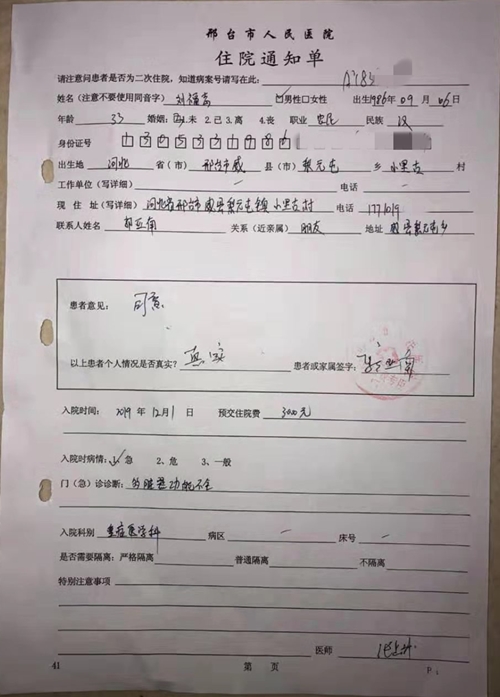 邢台市人民医院
住院通知单
请注意问患者是否为二次住院，知道病案号请写在此：
姓名（注意不要使用同音字） 男性口女性 出生1986年09月06日
年龄 33 婚姻： 未 2.已 3.离 4.丧 职业 农民 民族 汉
身份证号
出生地 河北 省（市） 邢台市威 县（市） 梨元屯 乡 小里古 村
工作单位（写详细） — 电话 —
现 住 址（写详细） 河北省邢台市威县梨元屯镇小里古村 1771019
联系人姓名 关系（近亲属） 朋友 地址 威县梨元屯乡
患者意见： 同意
以上患者个人情况是否真实？ 真实 患者或家属签字：
入院时间： 2019 年 12月1 日 预交住院费 3000元
入院时病情：1、急 2、危 3、一般
门（急）诊诊断： 多脏器功能不全
入院科别 重症医学科 病区 — 床号 —
是否需要隔离：严格隔离 普通隔离 不隔离
特别注意事项
医师
41 第 页